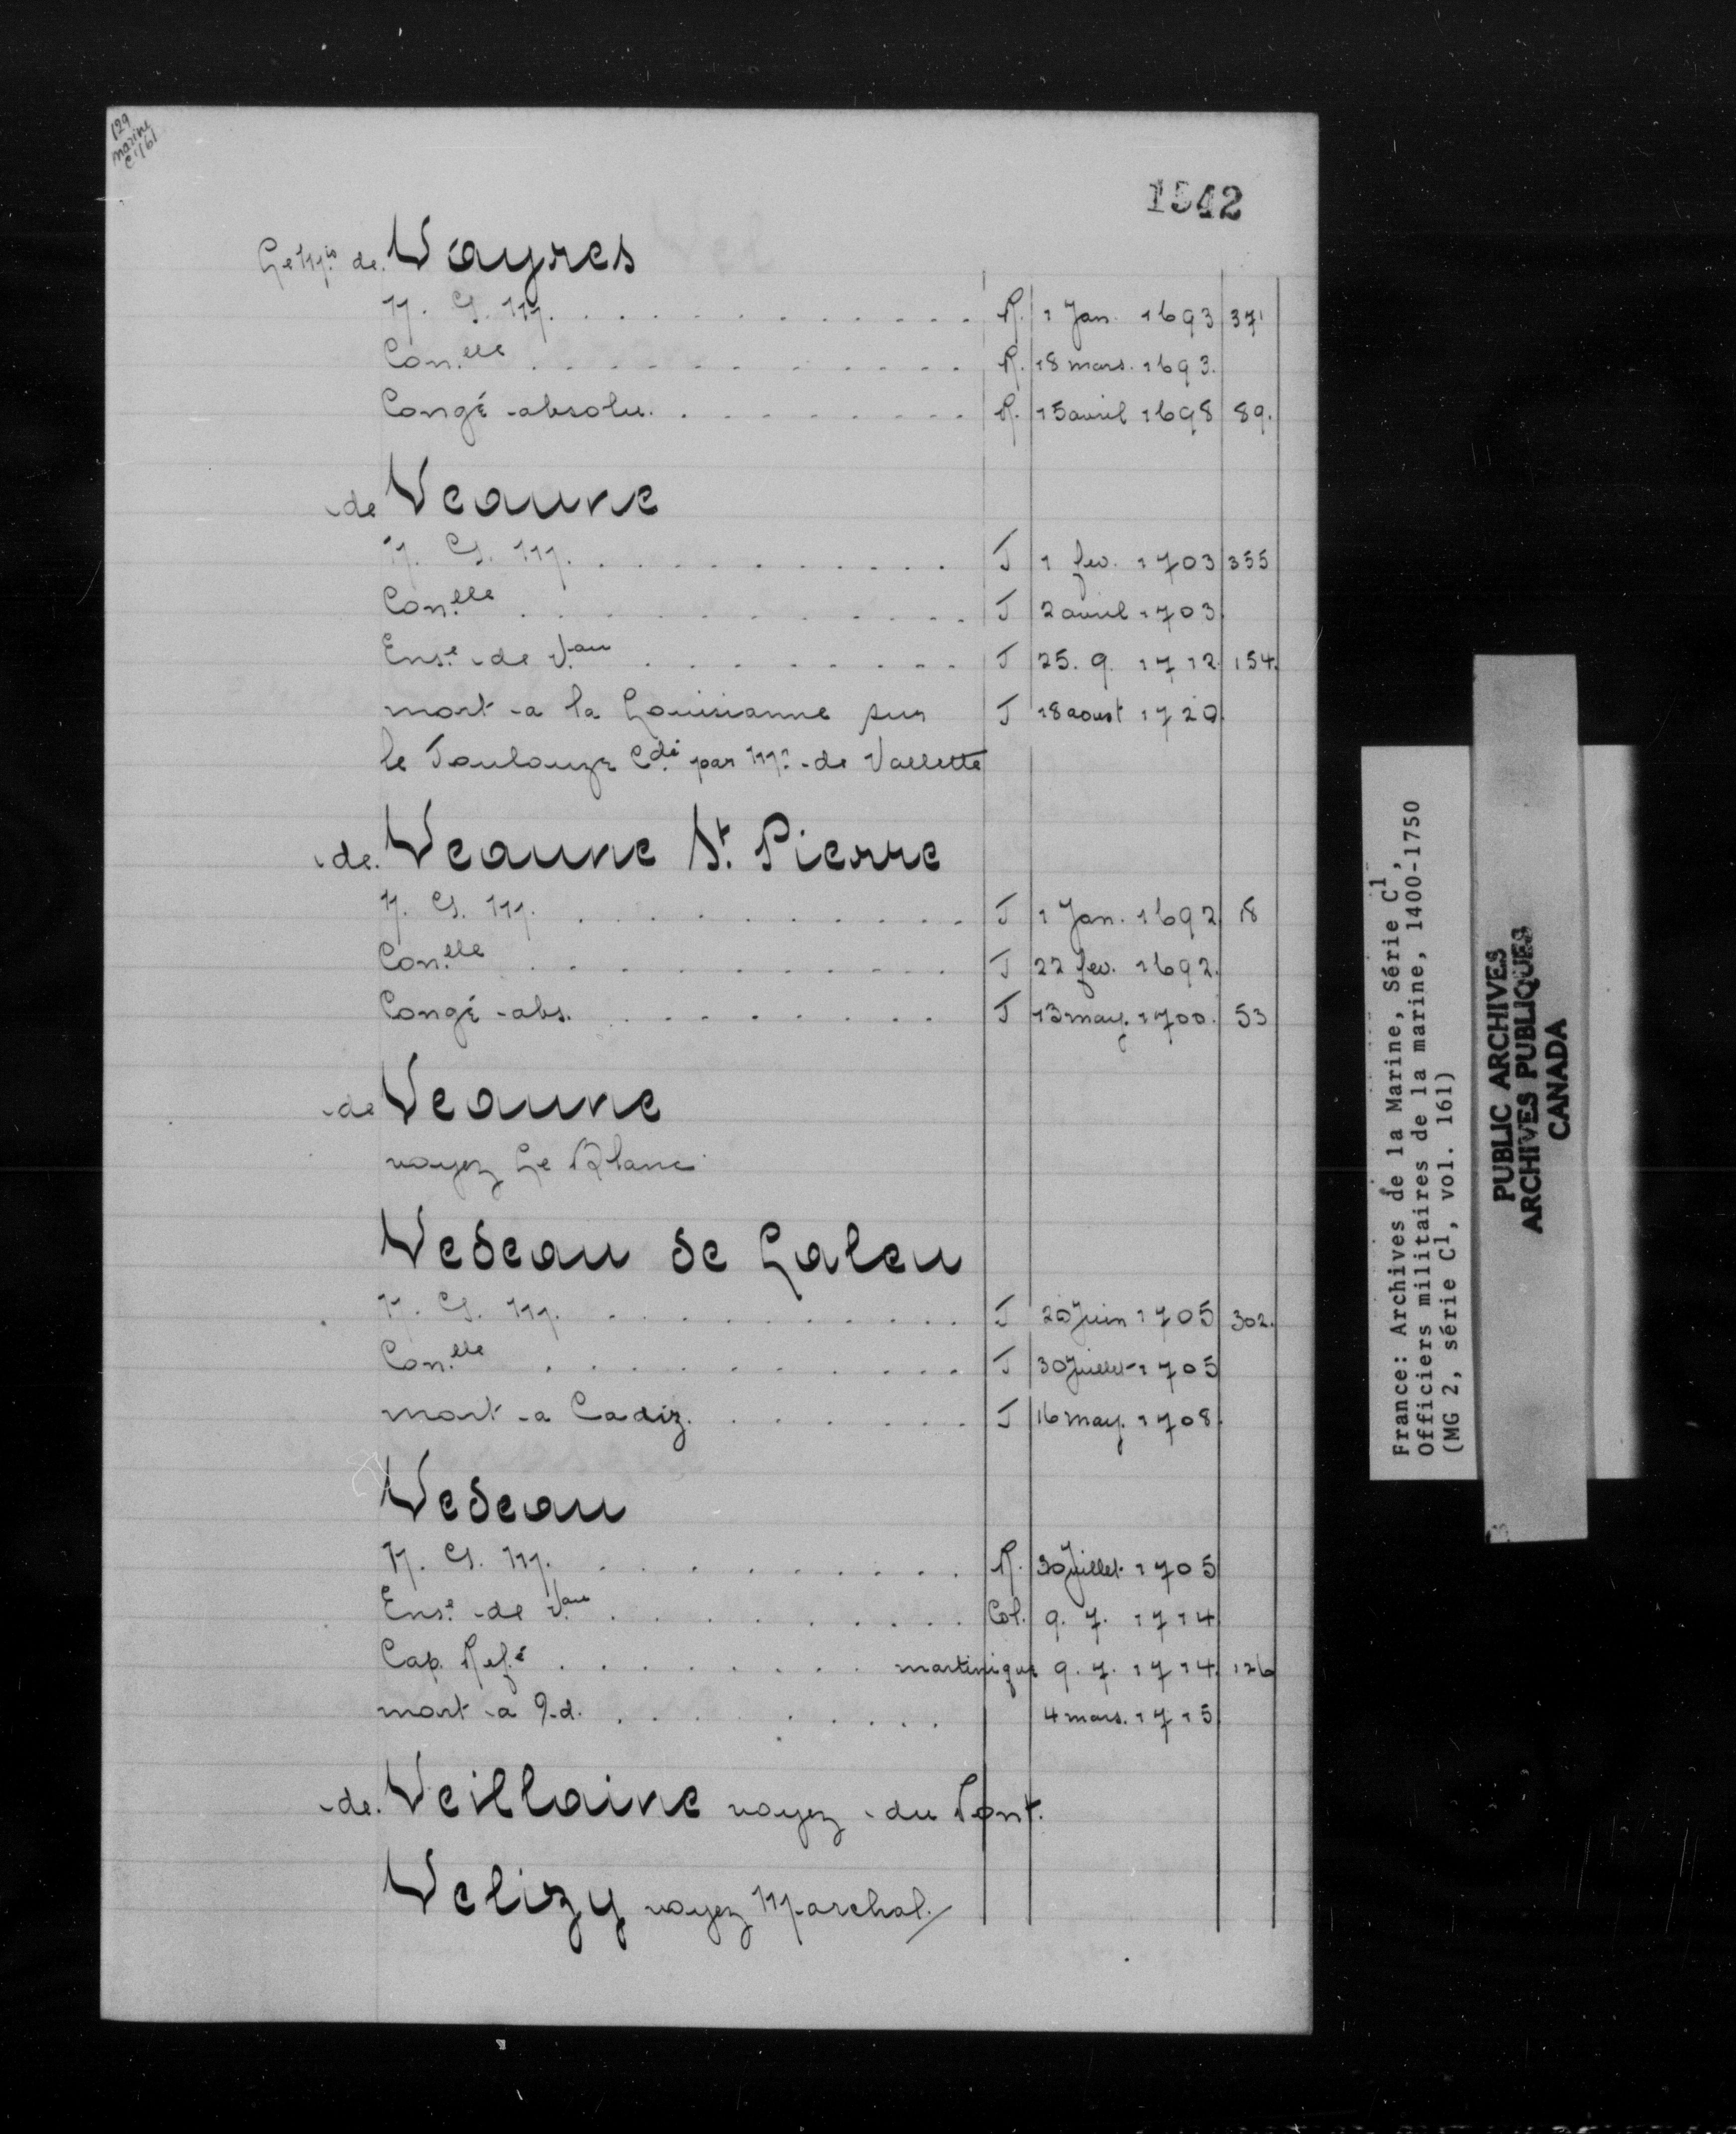 129
marine
C1/161
1542
Le Mis de Vayres
N. G. M. . . . . . . . . . . . R. 1 Jan. 1693 371
Con.elle . . . . . . . . . . . R. 18 mars. 1693.
Congé absolu. . . . . . . . . R. 15 avril 1698 89.
de Veaune
N. G. M. . . . . . . . . . . . J 1 fev. 1703 355
Con.elle . . . . . . . . . . . J 2 avril 1703.
Ens.e de V.au . . . . . . . . . J 25. 9. 1712. 154.
mort a la Louisianne sur J 18 aoust 1720.
le Toulouze Cdé par Mr. de Vallette
de. Veaune St. Pierre
N. G. M. . . . . . . . . . . . J 1 Jan. 1692 18
Con.elle . . . . . . . . . . . J 22 fev. 1692.
Congé abs. . . . . . . . . . J 13 may. 1700. 53
de Veaune
voyez Le Blanc
Vedeau de Galeu
N. G. M. . . . . . . . . . . . J 20 Juin 1705 302.
Con.elle . . . . . . . . . . . J 30 Juillet 1705
mort a Cadiz. . . . . . . . J 16 may. 1708.
Vedeau
N. G. M. . . . . . . . . . . . R. 30 Juillet 1705
Ens.e de V.au . . . . . . . . . Col. 9. 7. 1714.
Cap. Ref.é . . . . . . . . martinique 9. 7. 1714. 126
mort a . . . . . . . . . . 4 mars. 1715.
de. Veillaine voyez du Pont.
Velizy voyez Marchal.
France: Archives de la Marine, Série C1,
Officiers militaires de la marine, 1400-1750
(MG 2, série C1, vol. 161)
PUBLIC ARCHIVES
ARCHIVES PUBLIQUES
CANADA